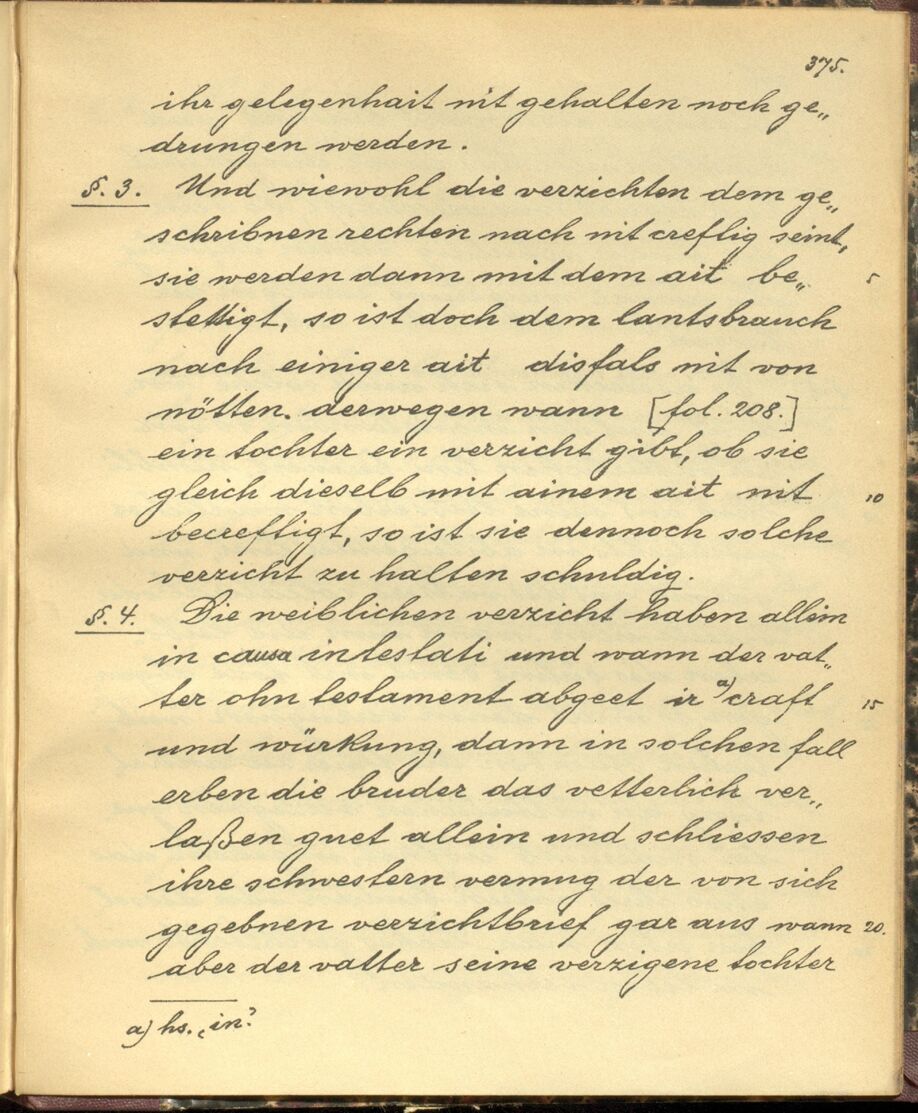 375.
ihr gelegenhait nit gehalten noch ge„
drungen werden.
§. 3. Und wiewohl die verzichten dem ge„
schribnen rechten nach nit creftig seint,
sie werden dann mit dem ait be„ 5
stettigt, so ist doch dem lantsbrauch
nach einiger ait disfals nit von
nötten. derwegen wann [fol. 208.]
ein tochter ein verzicht gibt, ob sie
gleich dieselb mit ainem ait nit 10
becreftigt, so ist sie dennoch solche
verzicht zu halten schuldig.
§. 4. Die weiblichen verzicht haben allein
in causa intestati und wann der vat„
ter ohn testament abgeet ir a) craft 15
und würkung, dann in solchen fall
erben die bruder das vetterlich ver„
laßen guet allein und schliessen
ihre schwestern vermug der von sich
gegebnen verzichtbrief gar aus wann 20.
aber der vatter seine verzigene tochter
a) hs. „in“